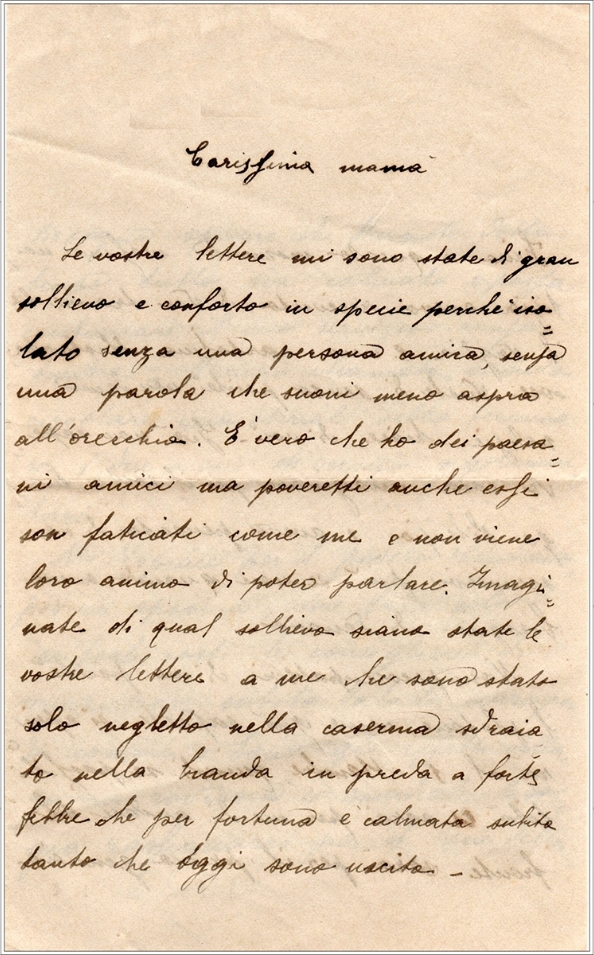 Carissima mamà
Le vostre lettere mi sono state di gran
sollievo e conforto in specie perchè iso=
lato senza una persona amica, senza
una parola che suoni meno aspra
all'orecchio. È vero che ho dei paesa=
ni amici ma poveretti anche essi
son faticati come me e non viene
loro animo di poter parlare. Imagi=
nate di qual sollievo siano state le
vostre lettere a me che sono stato
solo negletto nella caserma sdraia
to nella branda in preda a forte
febbre che per fortuna è calmata subito
tanto che oggi sono uscito –